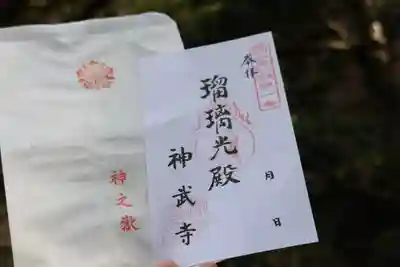 奉拝
瑠璃光殿
神武寺
月 日
神之嶽